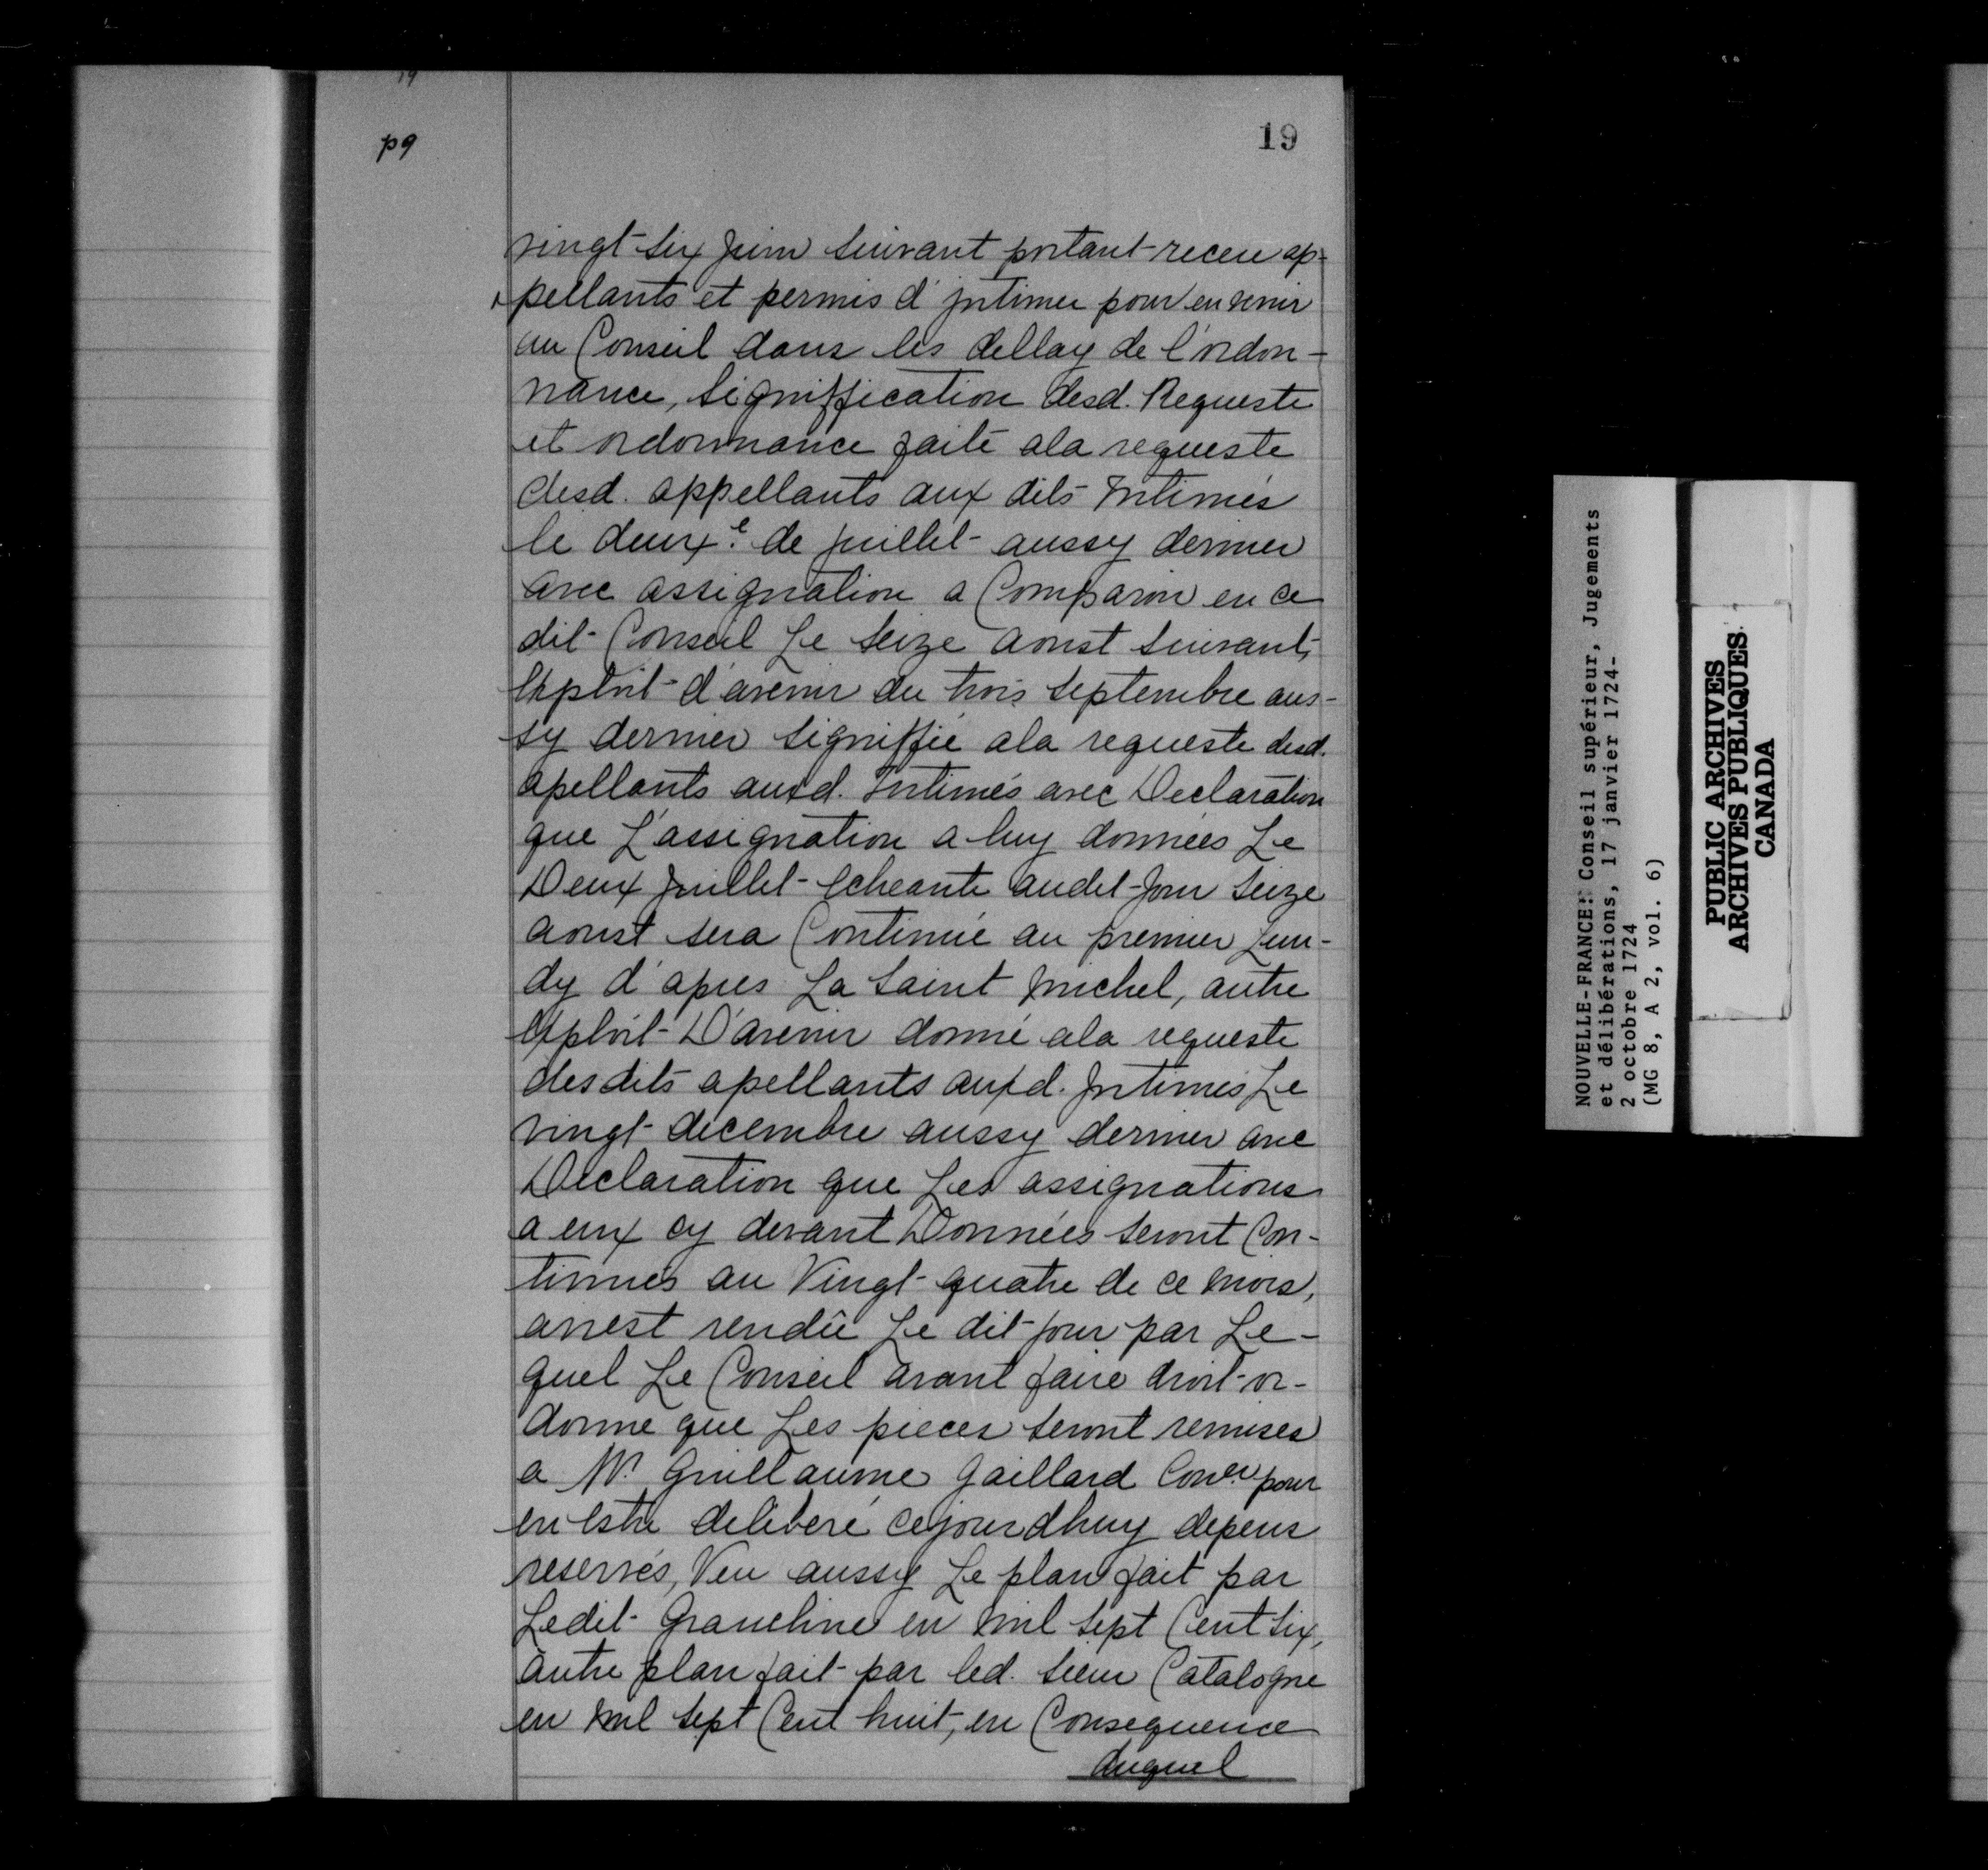 19
p9
19
vingt-six juin suivant portant receu ap-
pellants et permis d'jntimer pour en venir
au Conseil dans les dellay de l'ordon-
nance, signiffication desd. Requeste
et ordonnance faite ala requeste
desd. appellants aux dits Intimés
le deuxe. de juillet aussy dernier
avec assignation a Comparoir en ce
dit Conseil Le seize aoust suivant,
Exploit d'avenir du trois septembre aus-
sy dernier signiffié ala requeste desd.
apellants auxd. Intimés avec Declaration
que L'assignation a luy données Le
Deux juillet Echeante audit Jour seize
aoust sera Continuée au premier Lun-
dy d'apres La saint michel, autre
Exploit D'avenir donné ala requeste
desdits apellants auxd. jntimés Le
vingt decembre aussy dernier avec
Declaration que Les assignations
a eux cy devant Données seront Con-
tinués au Vingt-quatre de ce mois,
arrest rendû Le dit jour par Le-
quel Le Conseil avant faire droit or-
donne que Les pieces seront remises
a Me. Guillaume Gaillard Coner. pour
en Estre déliberé cejourdhuy depens
reservés, Veu aussy Le plan fait par
Ledit Graveline en mil sept Cent six,
autre plan fait par led. sieur Catalogne
en mil sept Cent huit, en Consequence
duquel
NOUVELLE-FRANCE: Conseil supérieur, Jugements
et délibérations, 17 janvier 1724-
2 octobre 1724
(MG 8, A 2, vol. 6)
PUBLIC ARCHIVES
ARCHIVES PUBLIQUES
CANADA